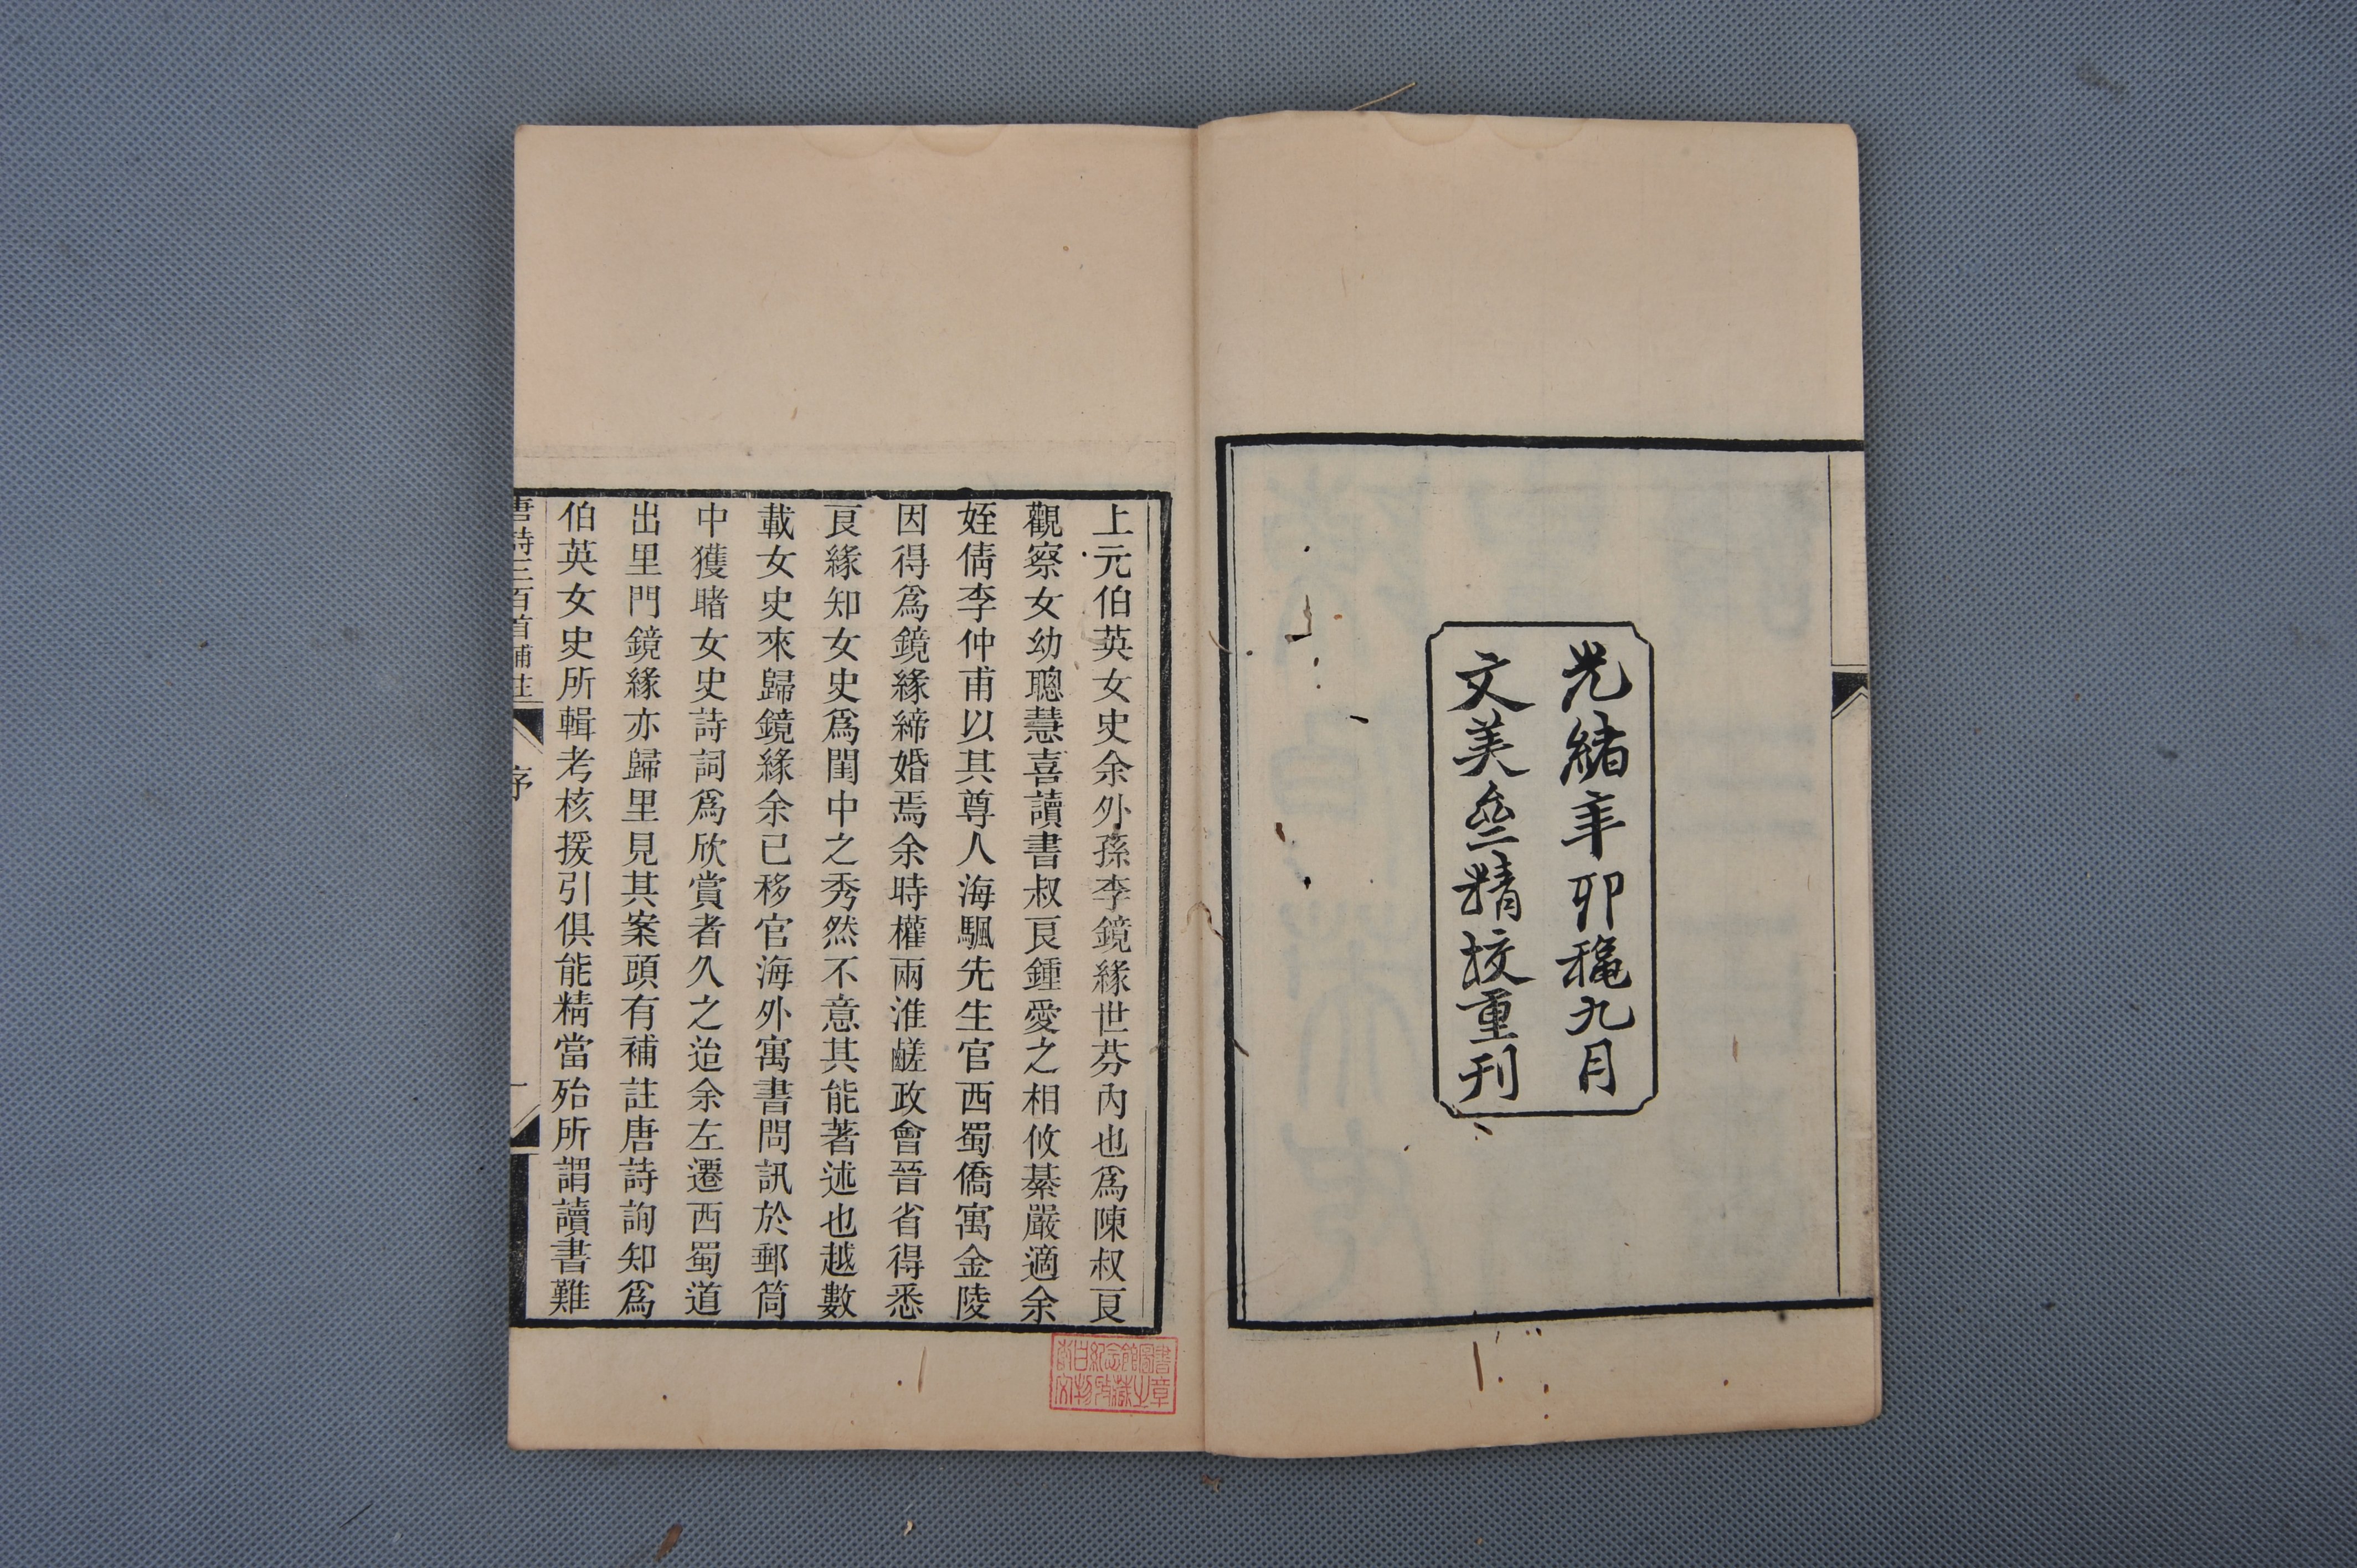 光緒辛卯龝九月
文美齋精校重刊
上元伯英女史余外孫李鏡緣世芬內也爲陳叔良
觀察女幼聰慧喜讀書叔良鍾愛之相攸綦嚴適余
姪倩李仲甫以其尊人海颿先生官西蜀僑寓金陵
因得爲鏡緣締婚焉余時權兩淮鹺政會晉省得悉
良緣知女史爲閨中之秀然不意其能著述也越數
載女史來歸鏡緣余已移官海外寓書問訊於郵筒
中獲睹女史詩詞爲欣賞者久之迨余左遷西蜀道
出里門鏡緣亦歸里見其案頭有補註唐詩詢知爲
伯英女史所輯考核援引俱能精當殆所謂讀書難
唐詩三百首補註
序
一
李白紀念館圖書
文物收藏之章